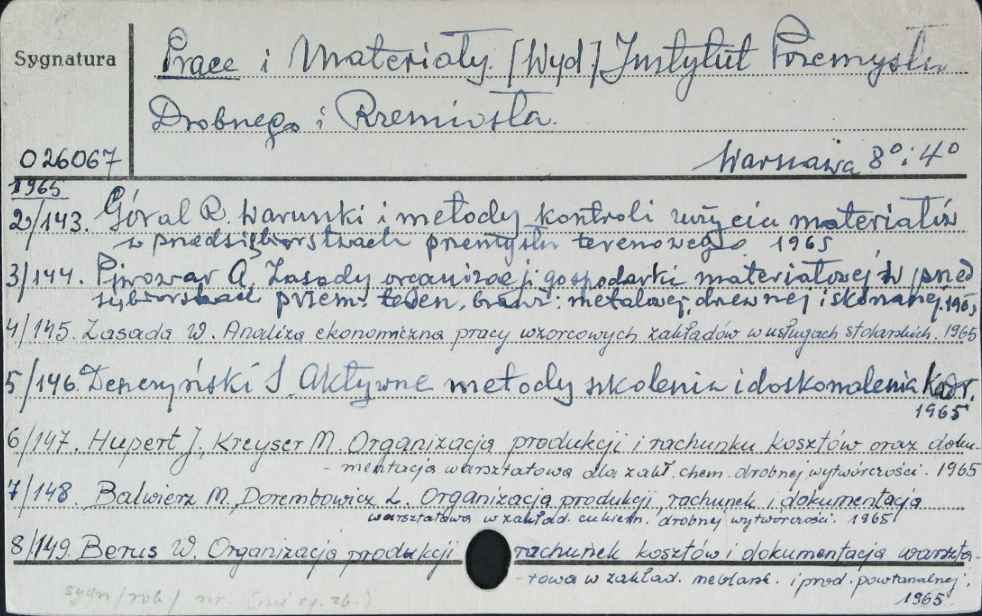 Sygnatura
Prace i Materiały. [Wyd] Instytut Przemysłu
Drobnego i Rzemiosła.
026067
Warszawa 8° i 4°
1965
2/143. Góral R. Warunki i metody kontroli zużycia materiałów
w przedsiębiorstwach przemysłu terenowego 1965
3/144. Pirowar A. Zasady organizacji gospodarki materiałowej w przed
siębiorstwach przem. teren. branż: metalowej, drzewnej i skórzanej. 1965
4/145. Zasada W. Analiza ekonomiczna pracy wzorcowych zakładów w usługach stolarskich. 1965
5/146. Denczyński S. Aktywne metody szkolenia i doskonalenia kadr.
1965
6/147. Hupert J., Kreyser M. Organizacja produkcji i rachunku kosztów oraz doku-
- mentacja warsztatowa dla zakł. chem. drobnej wytwórczości. 1965
7/148. Balwierz M., Dorembowicz L. Organizacja produkcji, rachunek i dokumentacja
warsztatowa w zakład. cukiern. drobnej wytwórczości. 1965
8/149. Berus W. Organizacja produkcji rachunek kosztów i dokumentacja warszta-
- towa w zakład. meblarsk. i prod. powtarzalnej.
1965
sygn/rok/ nr.